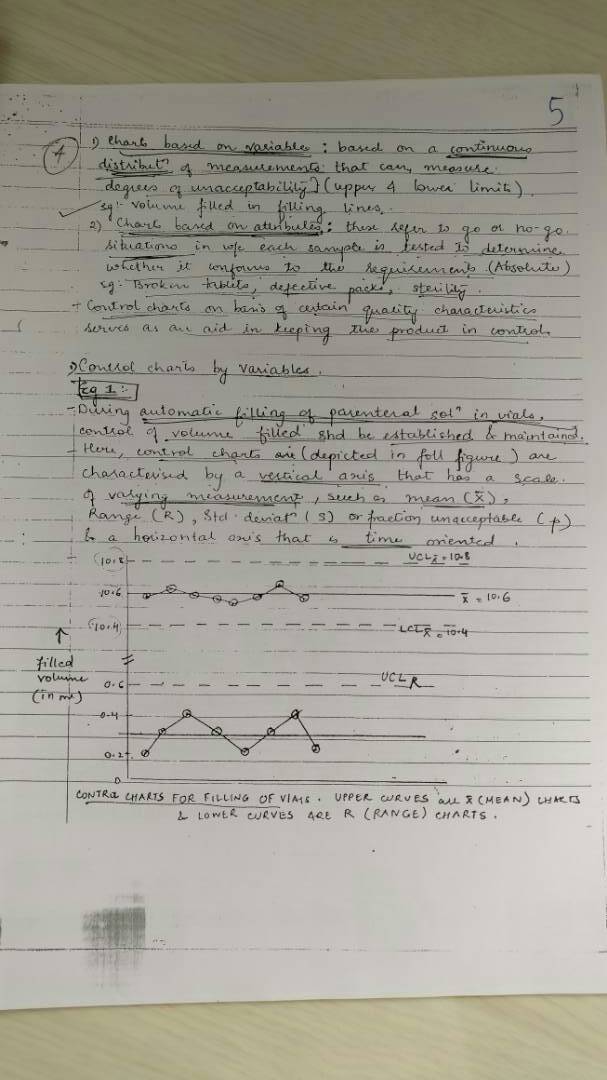 5
4
1) Charts based on variables : based on a continuous
distribut^n of measurements that can, measure
degrees of unacceptability] (upper & lower limits).
eg:- volume filled in filling lines.
2) Charts based on attributes : these refer to go or no-go
situations in w/c each sample is tested to determine
whether it conforms to the requirements (Absolute)
eg:- Broken tablets, defective packs, sterility.
- Control charts on basis of certain quality characteristics
serves as an aid in keeping the product in control.
1) Control charts by variables.
Eg 1:-
- During automatic filling of parenteral sol^n in vials,
control of volume filled shd be established & maintaind.
- Here, control charts are (depicted in foll figure) are
characterised by a vertical axis that has a scale
of varying measurement, such as mean (X̄),
Range (R), Std. deviat^n (S) or fraction unacceptable (p)
& a horizontal axis that is time oriented.
(10.8) UCL x̄ = 10.8
10.6 x̄ = 10.6
(10.4) LCL x̄ = 10.4
↑
filled
volume
(in ml)
0.6 UCL R
0.4
0.2
0
CONTROL CHARTS FOR FILLING OF VIALS. UPPER CURVES are x̄ (MEAN) CHARTS
& LOWER CURVES ARE R (RANGE) CHARTS.